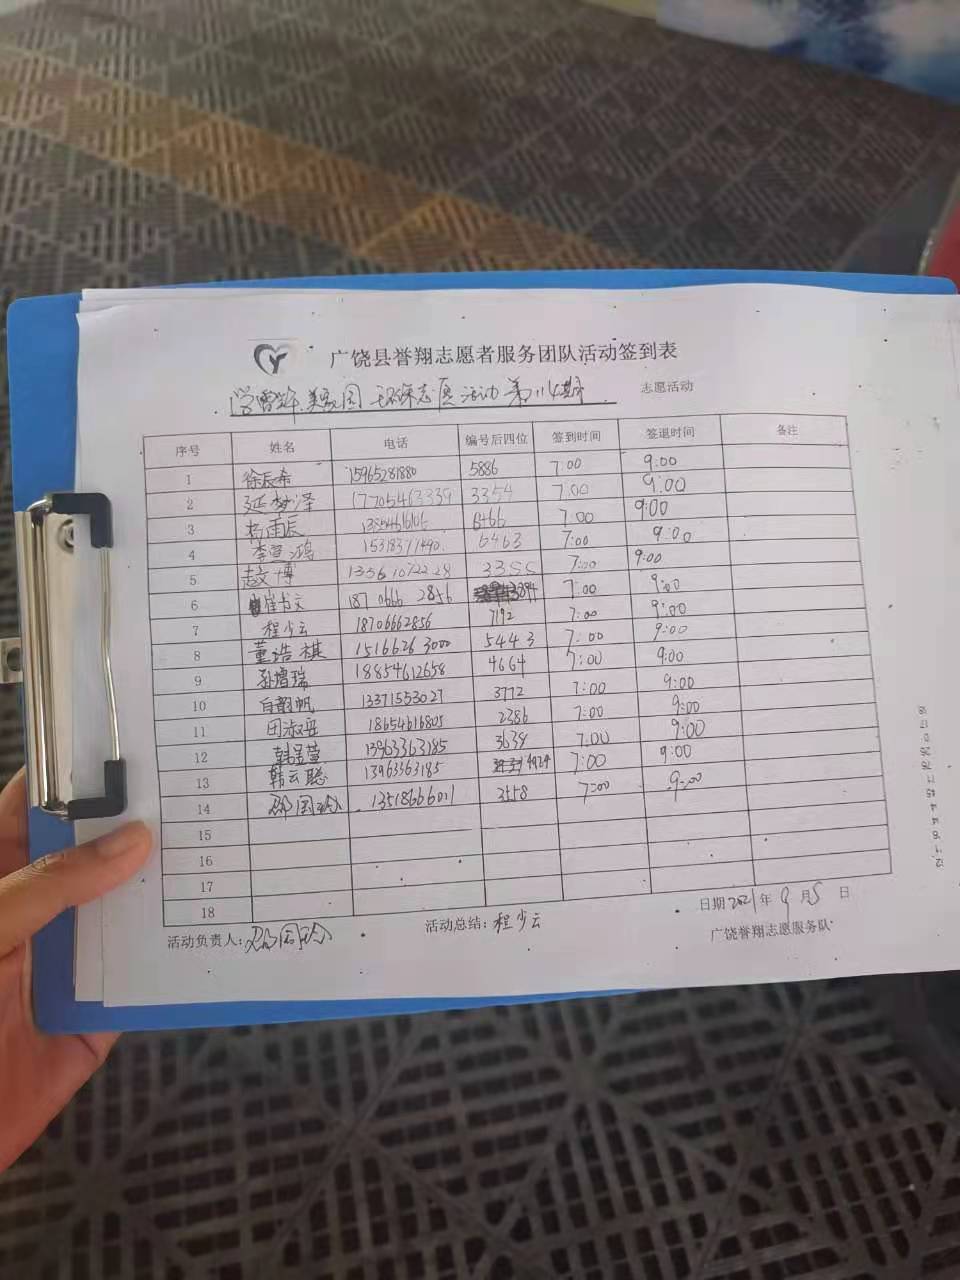 广饶县誉翔志愿者服务团队活动签到表
学雷锋 美家园 环保志愿活动第114期 志愿活动
序号 姓名 电话 编号后四位 签到时间 签退时间 备注
1 徐辰希 15965281880 5886 7:00 9:00
2 延梦泽 17705463339 3354 7:00 9:00
3 杨雨辰 6466 7:00 9:00
4 李 鸿 6463 7:00 9:00
5 赵文博 13561072228 3355 7:00 9:00
6 崔书文 187 0666 2856 7:00 9:00
7 程少云 18706662856 7192 7:00 9:00
8 董浩祺 15166263000 5443 7:00 9:00
9 孙增瑞 18854612658 4664 7:00 9:00
10 白韵帆 13371553027 3772 7:00 9:00
11 田淑岳 18654616805 2386 7:00 9:00
12 韩昱萱 13963363185 3638 7:00 9:00
13 韩云聪 13963363185 4924 7:00 9:00
14 邵国玲 13518666011 3558 7:00 9:00
15
16
17
18
日期 2021 年 9 月 5 日
活动负责人: 邵国玲 活动总结: 程少云
广饶誉翔志愿服务队